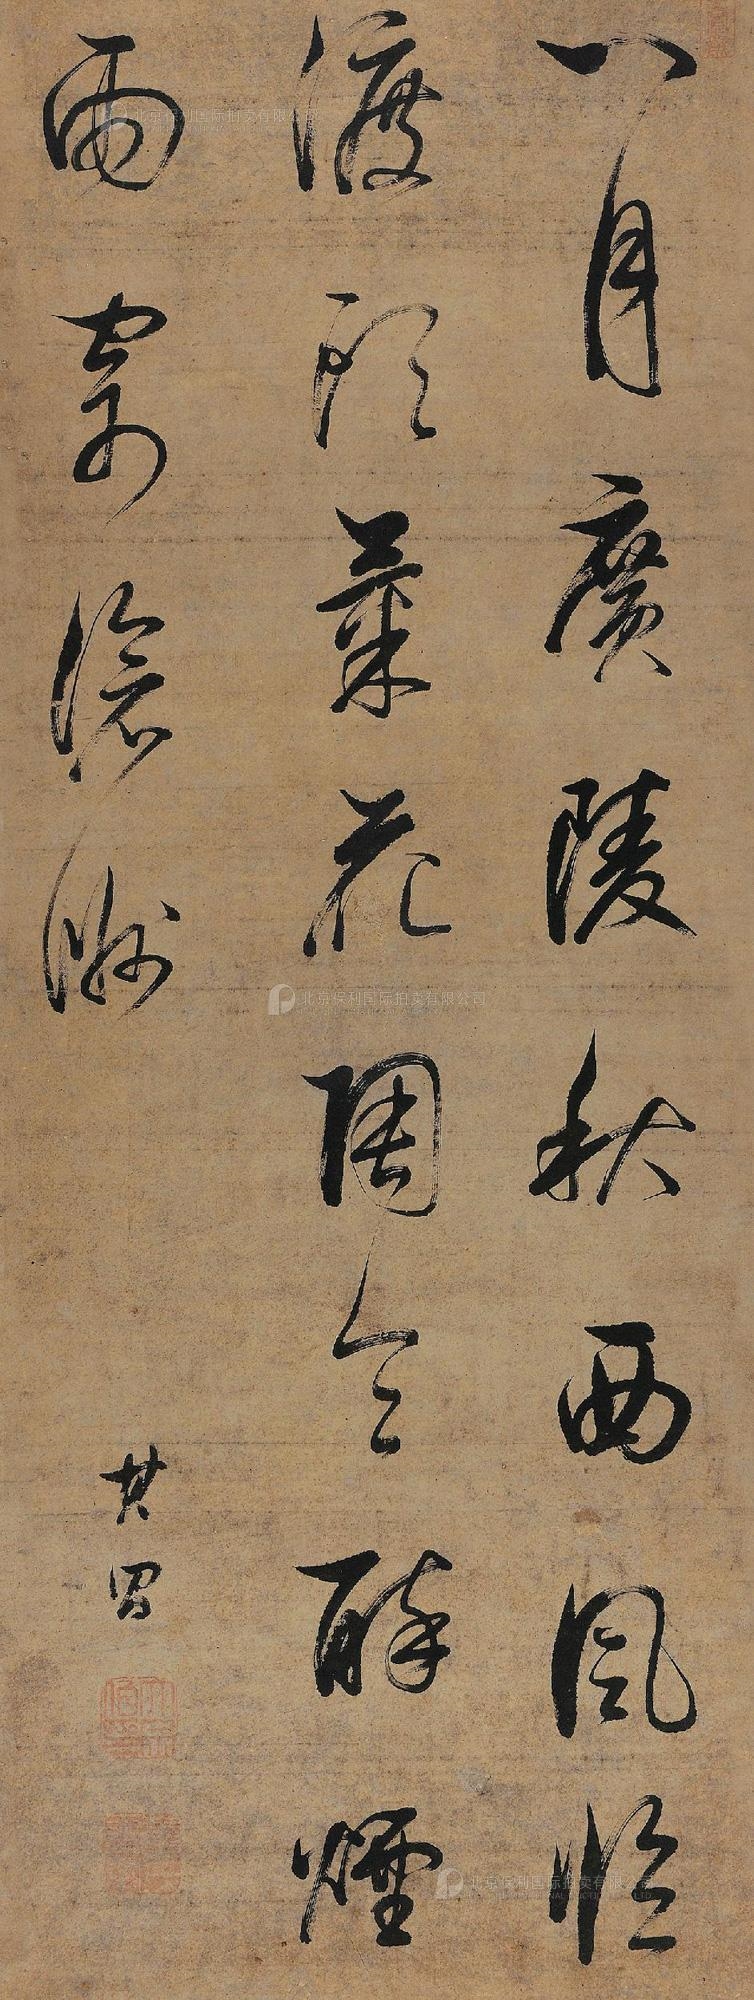 八月廣陵秋西風臨
渡頭菊花陶令醉煙
雨寄滄洲
其昌
北京保利国际拍卖有限公司
北京保利国际拍卖有限公司
北京保利国际拍卖有限公司